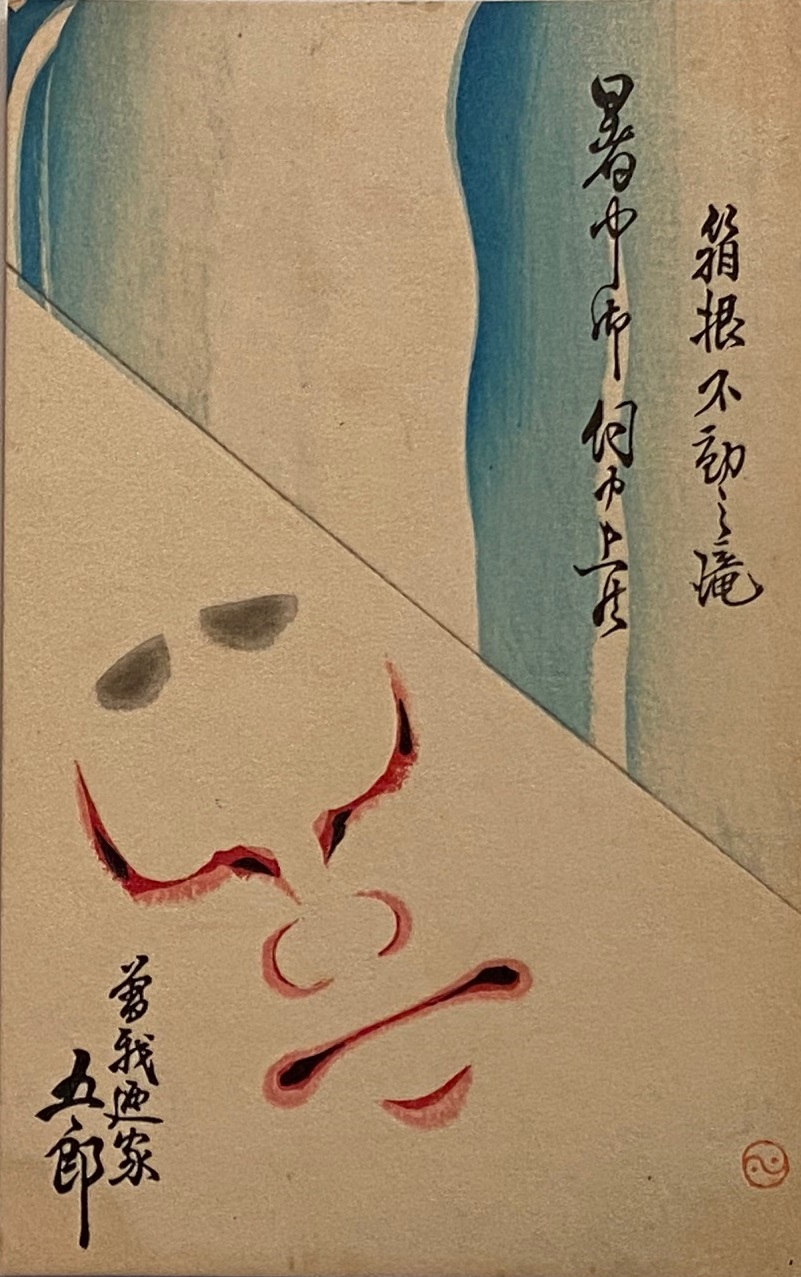 箱根不動之滝
暑中御伺申上候
曽我廼家
五郎